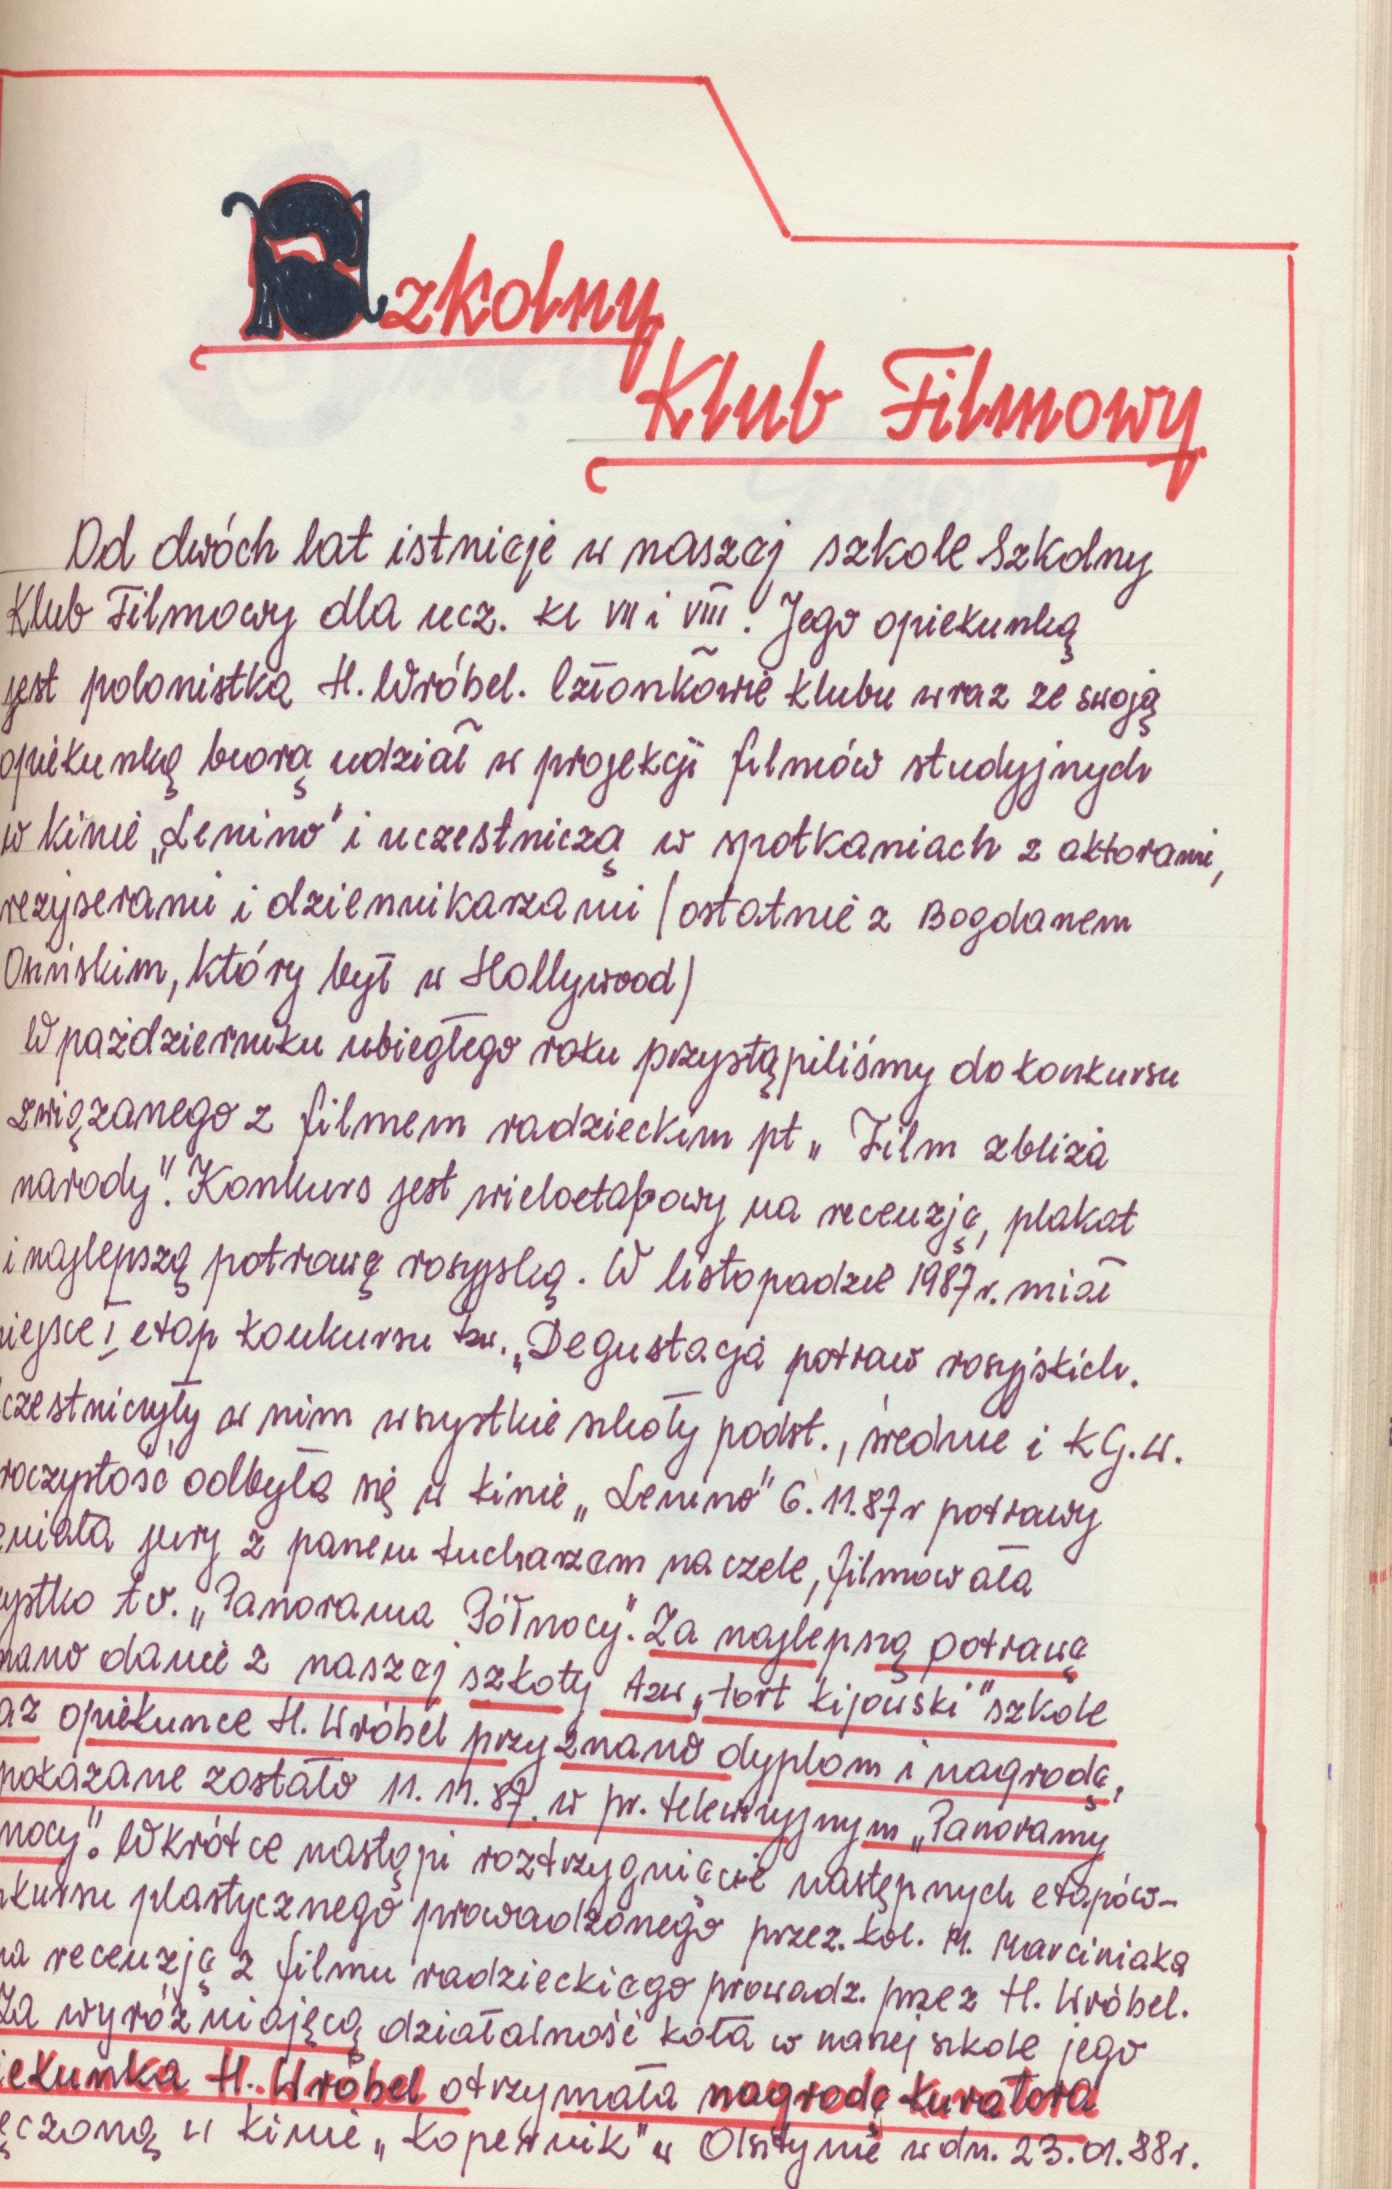 Szkolny
Klub Filmowy
Od dwóch lat istnieje w naszej szkole Szkolny
Klub Filmowy dla ucz. kl VII i VIII. Jego opiekunką
jest polonistka H. Wróbel. Członkowie klubu wraz ze swoją
opiekunką biorą udział w projekcji filmów studyjnych
w kinie „Lenino" i uczestniczą w spotkaniach z aktorami,
reżyserami i dziennikarzami (ostatnie z Bogdanem
Osińskim, który był w Hollywood)
W październiku ubiegłego roku przystąpiliśmy do konkursu
związanego z filmem radzieckim pt „Film zbliża
narody". Konkurs jest wieloetapowy na recenzję, plakat
i najlepszą potrawę rosyjską. W listopadzie 1987r. miał
iejsce I etap konkursu tzw. „Degustacja potraw rosyjskich.
czestniczyły w nim wszystkie szkoły podst., średnie i KG.W.
roczystość odbyła się w kinie „Lenino" 6.11.87r potrawy
eniała jury z panem kucharzem na czele, filmowała
ystko tv. „Panorama Północy". Za najlepszą potrawę
nano danie z naszej szkoły tzw „tort kijowski" szkole
az opiekunce H. Wróbel przyznano dyplom i nagrodę,
pokazane zostało 11.11.87. w pr. telewizyjnym „Panoramy
nocy". Wkrótce nastąpi roztrzygnięcie następnych etapów-
kursu plastycznego prowadzonego przez. kol. M. Marciniaka
na recenzję z filmu radzieckiego prowadz. przez H. Wróbel.
Za wyróżniającą działalność koła w naszej szkole jego
iekunka H. Wróbel otrzymała nagrodę kuratora
ęczoną w kinie „Kopernik" w Olsztynie w dn. 23.01.88r.